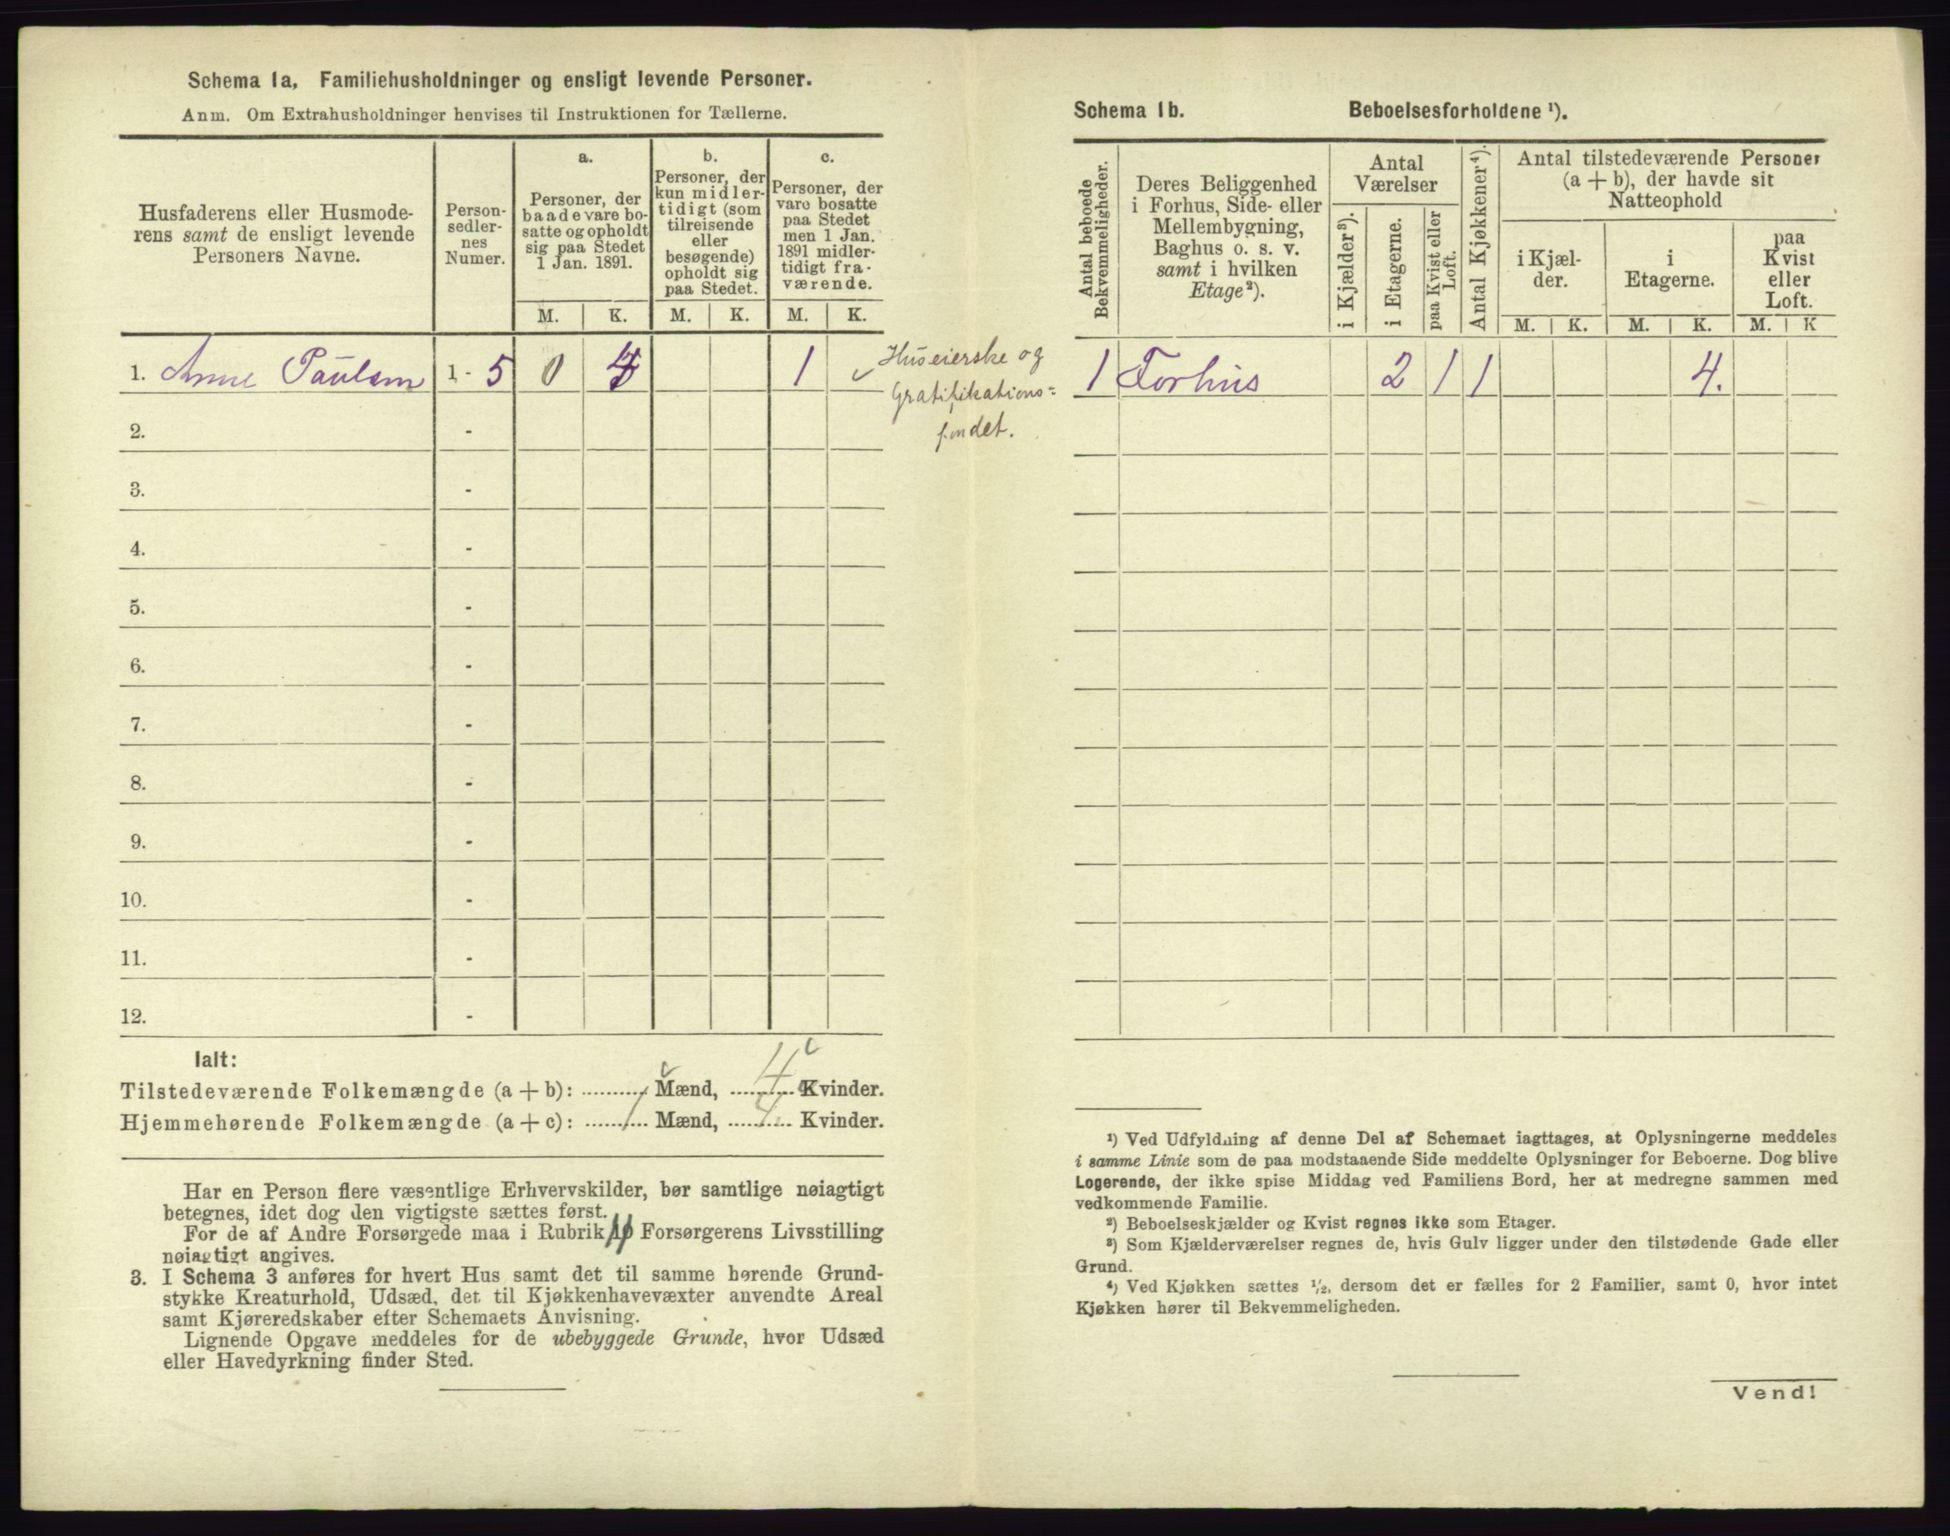 Schema 1a, Familiehusholdninger og ensligt levende Personer.
Anm. Om Extrahusholdninger henvises til Instruktionen for Tællerne.
Husfaderens eller Husmode-
rens samt de ensligt levende
Personers Navne.
Person-
sedler-
nes
Numer.
a.
Personer, der
baade vare bo-
satte og opholdt
sig paa Stedet
1 Jan. 1891.
b.
Personer, der
kun midler-
tidigt (som
tilreisende
eller
besøgende)
opholdt sig
paa Stedet.
c.
Personer, der
vare bosatte
paa Stedet
men 1 Jan.
1891 midler-
tidigt fra-
værende.
M. K. M. K. M. K.
1. Anne Paulsen 1 - 5 0 4 1
Huseierske og
Gratifikations-
fondet.
2. -
3. -
4. -
5. -
6. -
7. -
8. -
9. -
10. -
11. -
12. -
Ialt:
Tilstedeværende Folkemængde (a + b): Mænd, 4 Kvinder.
Hjemmehørende Folkemængde (a + c): 1 Mænd, 4 Kvinder.
Har en Person flere væsentlige Erhvervskilder, bør samtlige nøiagtigt
betegnes, idet dog den vigtigste sættes først.
For de af Andre Forsørgede maa i Rubrik 10 Forsørgerens Livsstilling
nøiagtigt angives.
3. I Schema 3 anføres for hvert Hus samt det til samme hørende Grund-
stykke Kreaturhold, Udsæd, det til Kjøkkenhavevæxter anvendte Areal
samt Kjøreredskaber efter Schemaets Anvisning.
Lignende Opgave meddeles for de ubebyggede Grunde, hvor Udsæd
eller Havedyrkning finder Sted.
Schema 1b. Beboelsesforholdene ¹).
Antal beboede
Bekvemmeligheder.
Deres Beliggenhed
i Forhus, Side- eller
Mellembygning,
Baghus o. s. v.
samt i hvilken
Etage²).
Antal
Værelser
i Kjælder³).
i Etagerne.
paa Kvist eller
Loft.
Antal Kjøkkener⁴).
Antal tilstedeværende Personer
(a + b), der havde sit
Natteophold
i Kjæl-
der.
i
Etagerne.
paa
Kvist
eller
Loft.
M. K. M. K. M. K
1 Forhus 2 1 1 4.
¹) Ved Udfyldning af denne Del af Schemaet iagttages, at Oplysningerne meddeles
i samme Linie som de paa modstaaende Side meddelte Oplysninger for Beboerne. Dog blive
Logerende, der ikke spise Middag ved Familiens Bord, her at medregne sammen med
vedkommende Familie.
²) Beboelseskjælder og Kvist regnes ikke som Etager.
³) Som Kjælderværelser regnes de, hvis Gulv ligger under den tilstødende Gade eller
Grund.
⁴) Ved Kjøkken sættes ¹/₂, dersom det er fælles for 2 Familier, samt 0, hvor intet
Kjøkken hører til Bekvemmeligheden.
Vend!